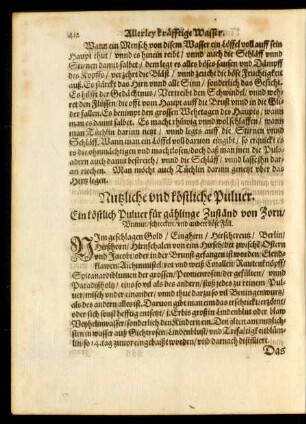 412 Allerley kräfftige Wasser.
Wann ein Mensch von disem Wasser ein löffel voll auff sein
Haupt thut / vnnd es hinein reibt / vnnd auch die Schläff vnnd
Stirnen damit salbet / dem legt es alles böses sausen vnd Dämpff
des Kopffs / verzehrt die Bläst / vnnd zeucht die böse Feuchtigkeit
auß. Es stärckt das Hirn vnnd alle Sinn / sonderlich das Gesicht.
Es hilfft der Gedächtnus / Vertreibt den Schwindel / vnnd weh-
ret den Flüssen / die offt vom Haupt auff die Brust vnnd in die Gli-
der fallen. Es benimpt den grossen Wehetagen des Haupts / wann
man es damit salbet. Es macht rhüwig vnnd wol schlaffen / wann
man Tüchlin darinn netzt / vnnd legts auff die Stirnen vnnd
Schläff. Wann man ein Löffel voll darvon eingibt / so erquickt es
die ohnmächtigen vnd machtlosen / doch daß man jnen die Puls-
adern auch damit bestreich / vnnd die Schläff / vnnd lasse jhn dar-
an riechen. Man möcht auch Tüchlin darinn genetzt vber das
Hertz legen.
Nutzliche vnd köstliche Puluer.
Ein köstlich Puluer für gählinge Zuständ von Zorn /
Vnmut / schrecken / vnd andere böse Fäll.
NIm geschlagen Gold / Einghirn / Hirschcreutz / Berlin /
Hirschhorn / Hirnschalen von eim Hirsch / der zwischen Ostern
vnd Jacobi / oder in der Brunst gefangen ist worden / Elend-
klawen / Aichinmistel / rot vnd weiß Corallen / Rautenknöpff /
Spicanardiblumen der grossen / Peonienrosen / der gefülten / vnnd
Paradißholtz / eins so vil als des andern / stoß jedes zu reinem Pul-
uer / misch vnder einander / vnnd thut darzu so vil Benningenwurtz /
als des andern alles ist. Daruon gibt man eim das erschrickt / erzörnt /
oder sich sonst hefftig entsetzt / j. Erbis groß in Lindenblust oder blaw
Wegheluenwasser / sonderlich den Kindern ein. Den alten am nützlich-
sten in wasser auß Gichtrosen / Lindenblust / vnd Tiefaltergleblüm-
lin / so 14. tag zuuor eingebaißt worden / vnd darnach distilliert.
Das